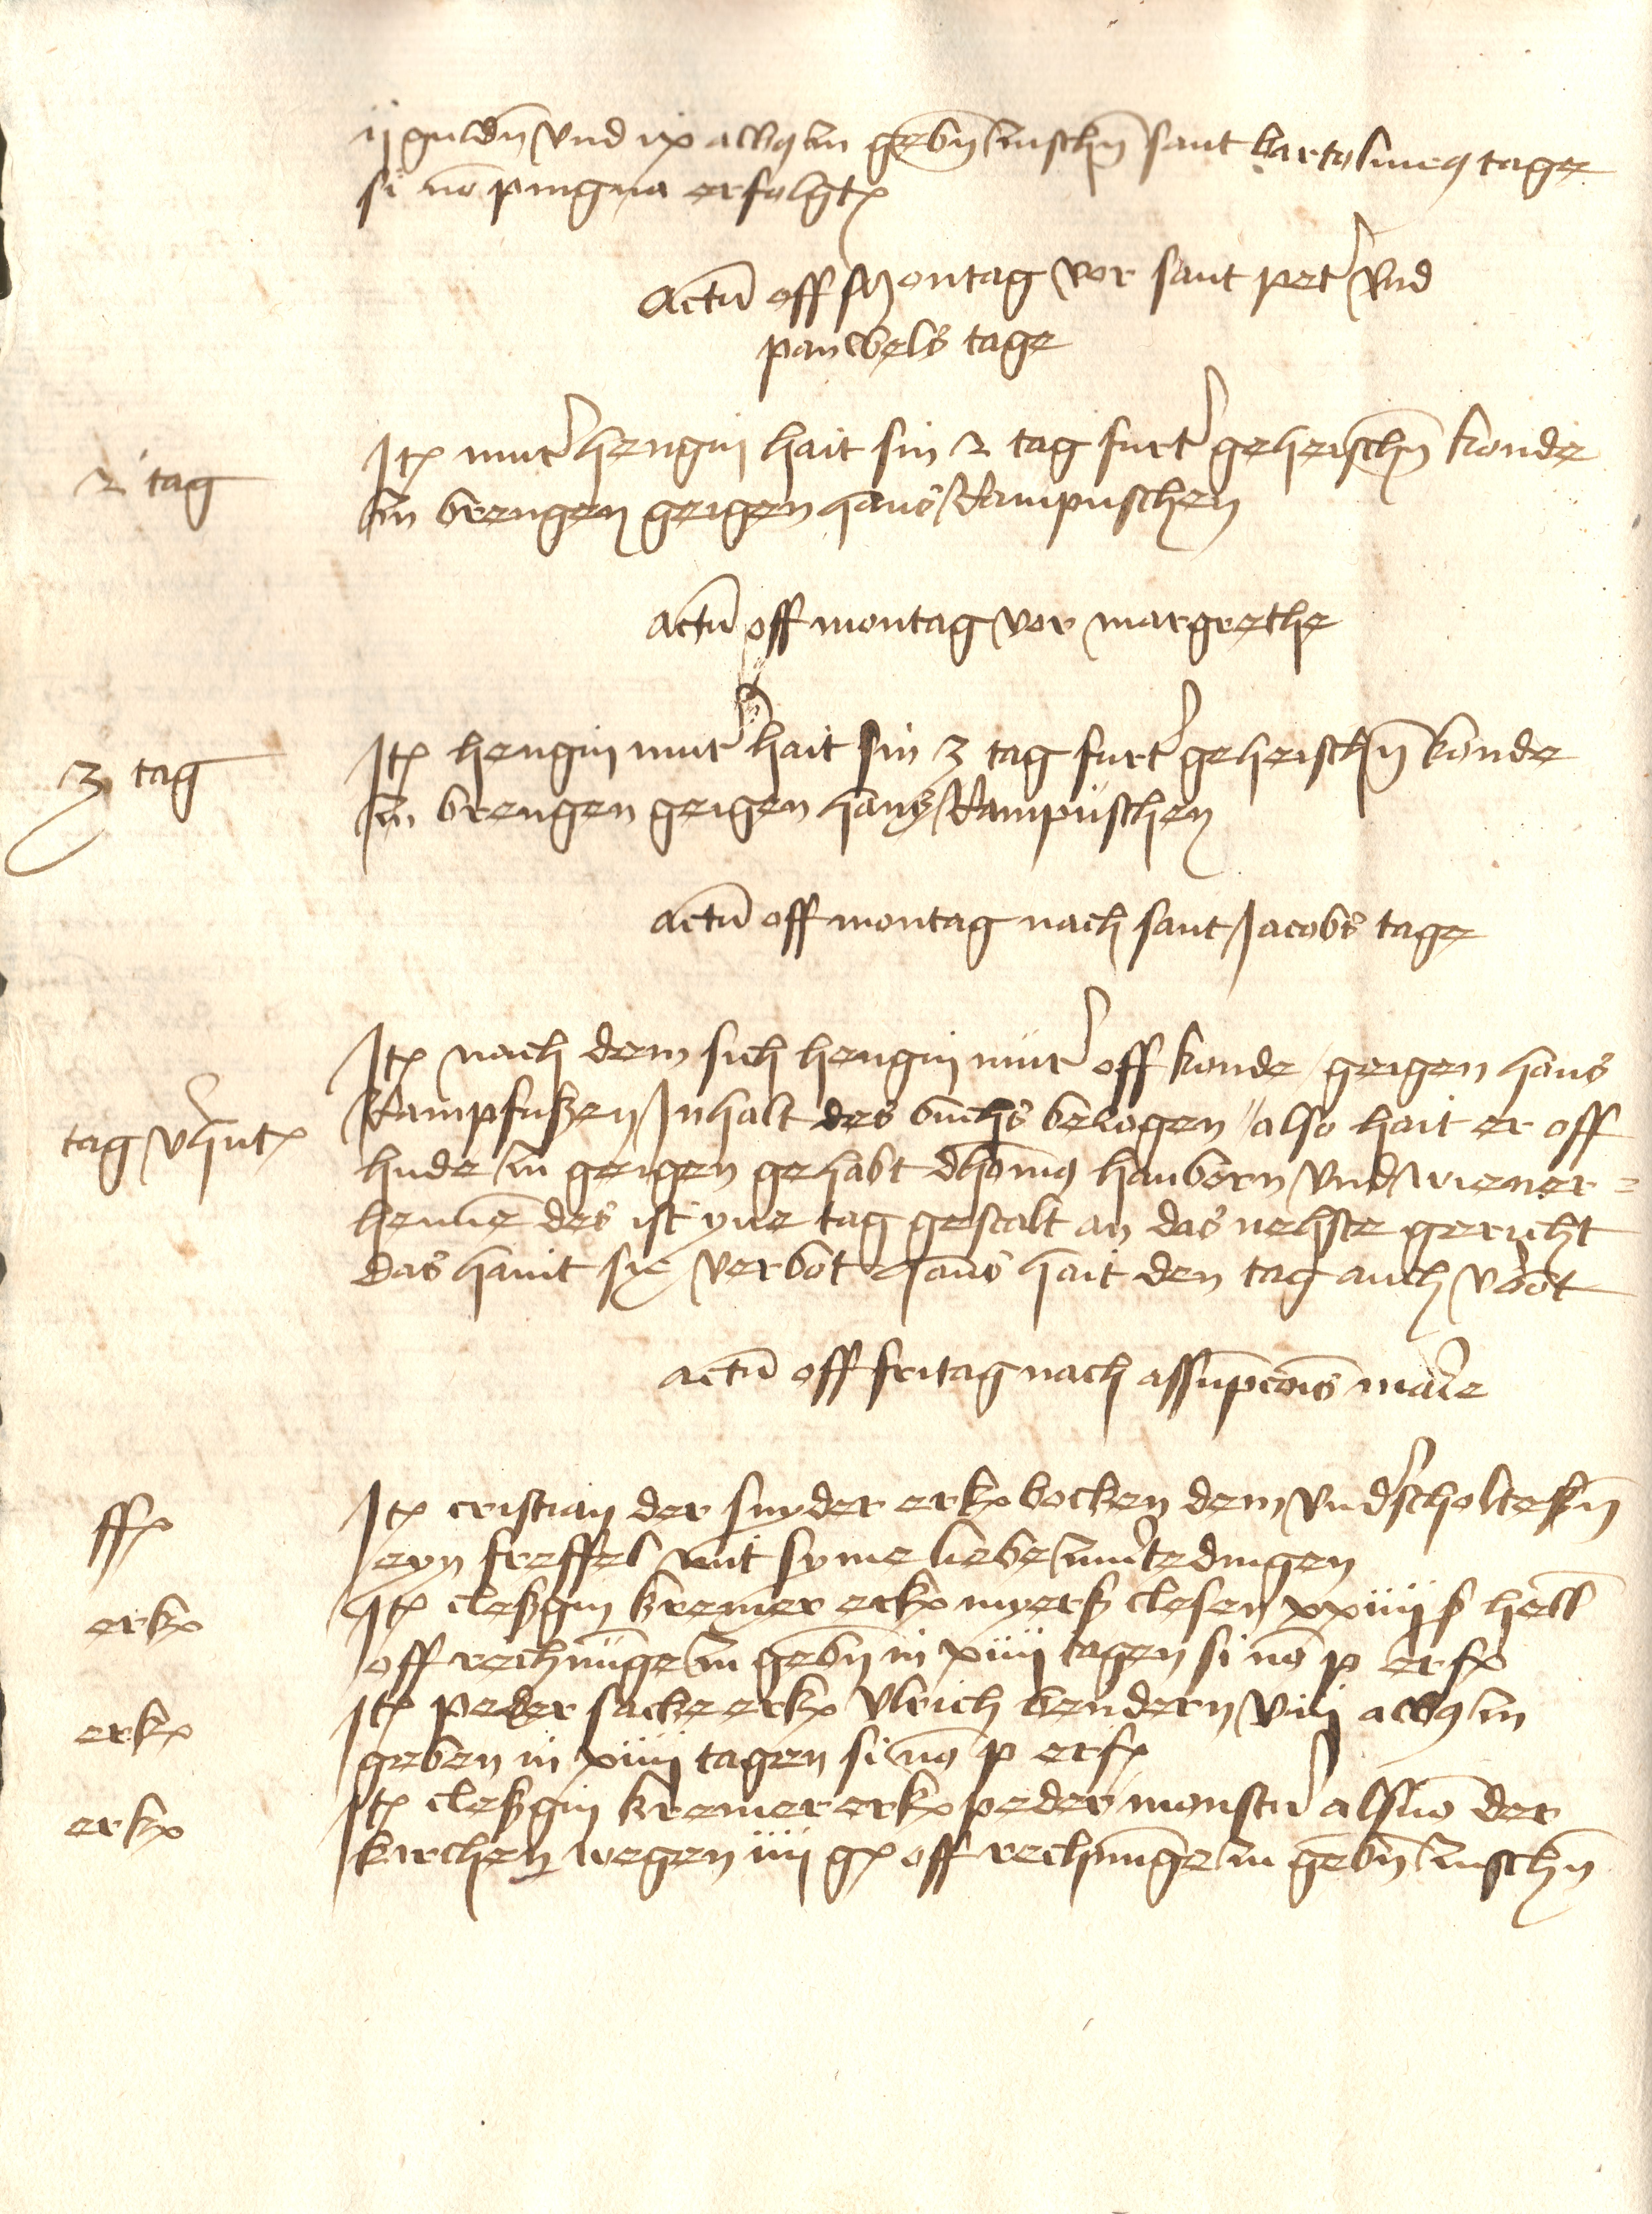 ij guldn̄ vnd ix albꝯ zu gebn̄ zuschn̄ sant bartolmeꝯ tage
si nō pingnā erfolgt
Actū off Montag vor sant pet' vnd
pauwels tage
2' tag
Itꝫ mut' hengin hait sin 2 tag furt' geheischn̄ konde
zu brengen geigen hans Rampuschen
actū off montag vor margrethe
3 tag
Itꝫ hengin mut' hait sin 3 tag furt' geheischn̄ konde
zu brengen geigen hans Rampüschen
actū off montag nach sant Jacobs tage
Itꝫ nach dem sich hengin müt' off konde geigen hans
tag v'hut
Rampfußen Inhalt des buchs bezogen also hait er off
hude zu geigen gehabt dhomꝯ hauborn vnd wiener=
hennē des ist yne tag gestalt an das nehste gericht
das hauit sie verbot hans hait den tag auch v'bot
actū off fritag nach assūpcōis ma'ie
ff
Itꝫ cristian der snyder erk bocken dem vnd'scholtesn̄
eyn freffel mit syme liebe zuu'tedingen
erk
Itꝫ cleßgin kremer erk myerß clesen xxiiij ß hell
off rechnūge zu gebn̄ in xiiij tagen si nō p erf
erk
Itꝫ peder sacke erk vlrich bendern viij albꝯ zu
geben in xiiij tagen si nō p erf
erk
Itꝫ cleßgin kremer erk peder monster also der
kirchen wegen iiij g off rechnūge zu gebn̄ zuschn̄